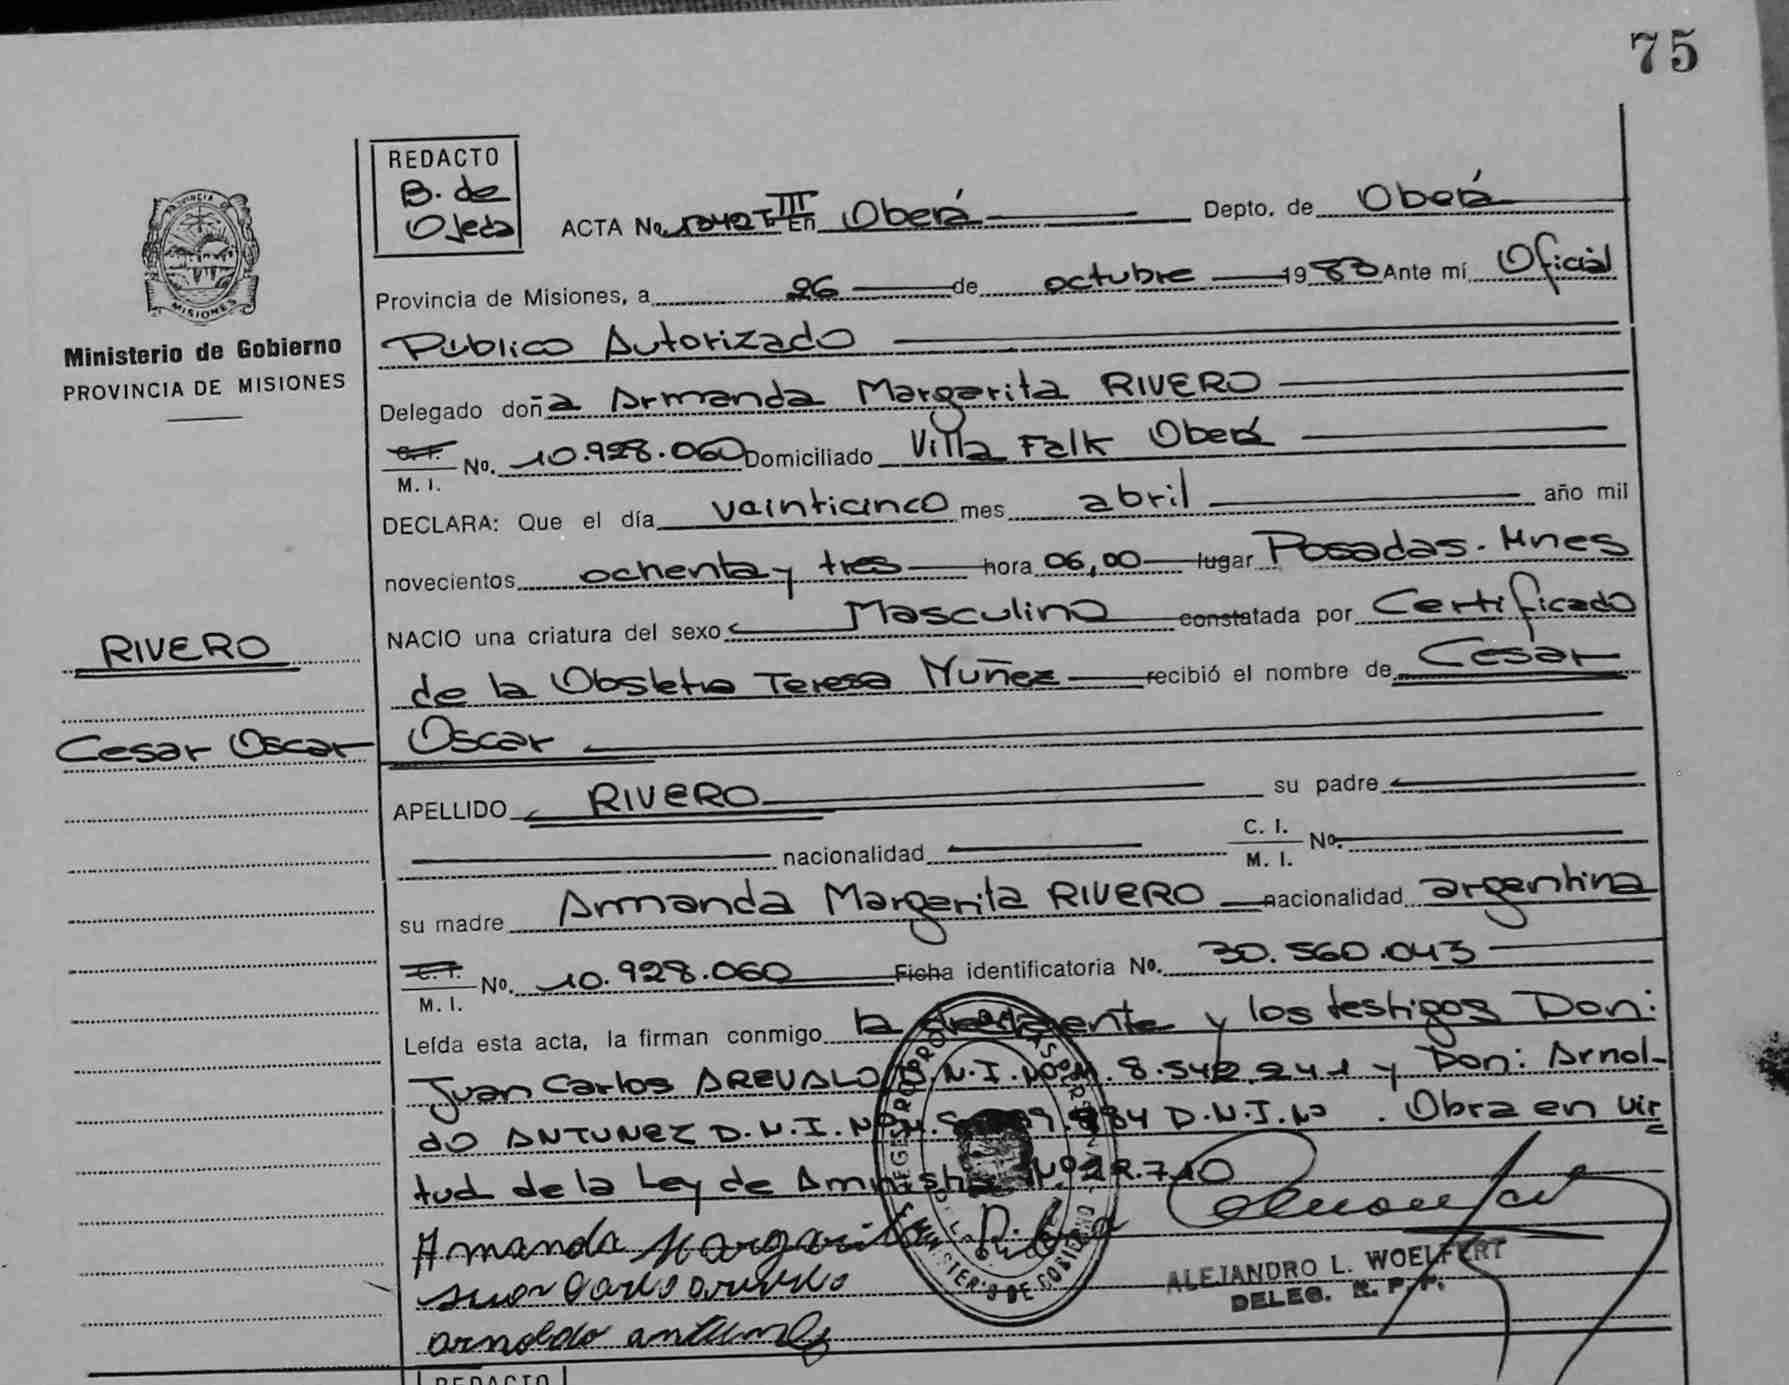 75
REDACTO
B. de
Ojeda
ACTA No. 1342 T III En Oberá Depto. de Oberá
PROVINCIA DE
MISIONES
Provincia de Misiones, a 26 de octubre 1983 Ante mí Oficial
Ministerio de Gobierno
PROVINCIA DE MISIONES
Público Autorizado
Delegado doña Armanda Margarita RIVERO
C.I. M. I. No. 10.928.060 Domiciliado Villa Falk Oberá
DECLARA: Que el día vainticinco mes abril año mil
novecientos ochenta y tres hora 06,00 lugar Posadas. Mnes
NACIO una criatura del sexo Masculino constatada por Certificado
RIVERO
de la Obstetra Teresa Nuñez recibió el nombre de Cesar
Cesar Oscar
Oscar
APELLIDO RIVERO su padre
nacionalidad C. I. M. I. No.
su madre Armanda Margarita RIVERO nacionalidad argentina
C.I. M. I. No. 10.928.060 Ficha identificatoria No. 30.560.043
Leída esta acta, la firman conmigo la y los testigos Don:
Juan Carlos AREVALO D.N.I. No M. 8.542.241 y Don: Arnol-
do ANTUNEZ D.N.I. No M. D.N.I. No . Obra en vir
tud de la Ley de Amnistia No 22.710
Armanda Margarita
MINISTERIO DE GOBIERNO
Juan Carlos arevalo
ALEJANDRO L. WOELFERT
DELEG. R. P. P.
arnoldo antunez
REDACTO